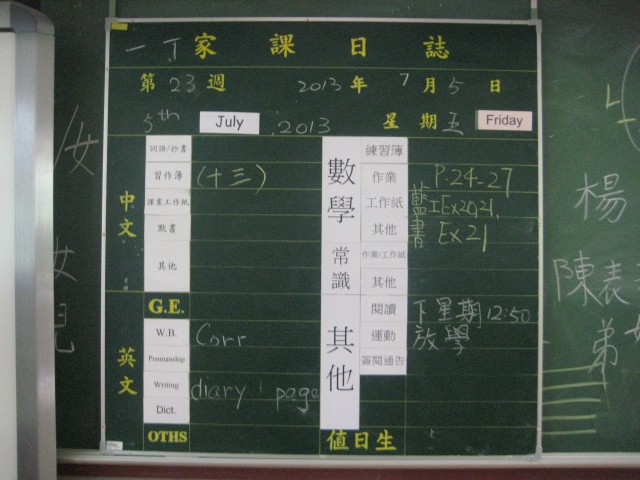 一丁家課日誌
第23週 2013年7月5日
5th July 2013 星期五 Friday
中文
詞語/抄書
習作簿 (十三)
課業工作紙
默書
其他
G.E.
英文
W.B. Corr
Penmanship
Writing diary 1 page
Dict.
OTHS
數學
練習簿
作業 P.24-27
工作紙 藍工Ex20,21,
其他 書 Ex21
常識
作業/工作紙
其他
其他
閱讀 下星期12:50
運動 放學
簽閱通告
值日生
女
女
兒
楊
陳表
弟